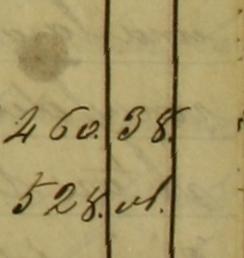 460. 38.
528.